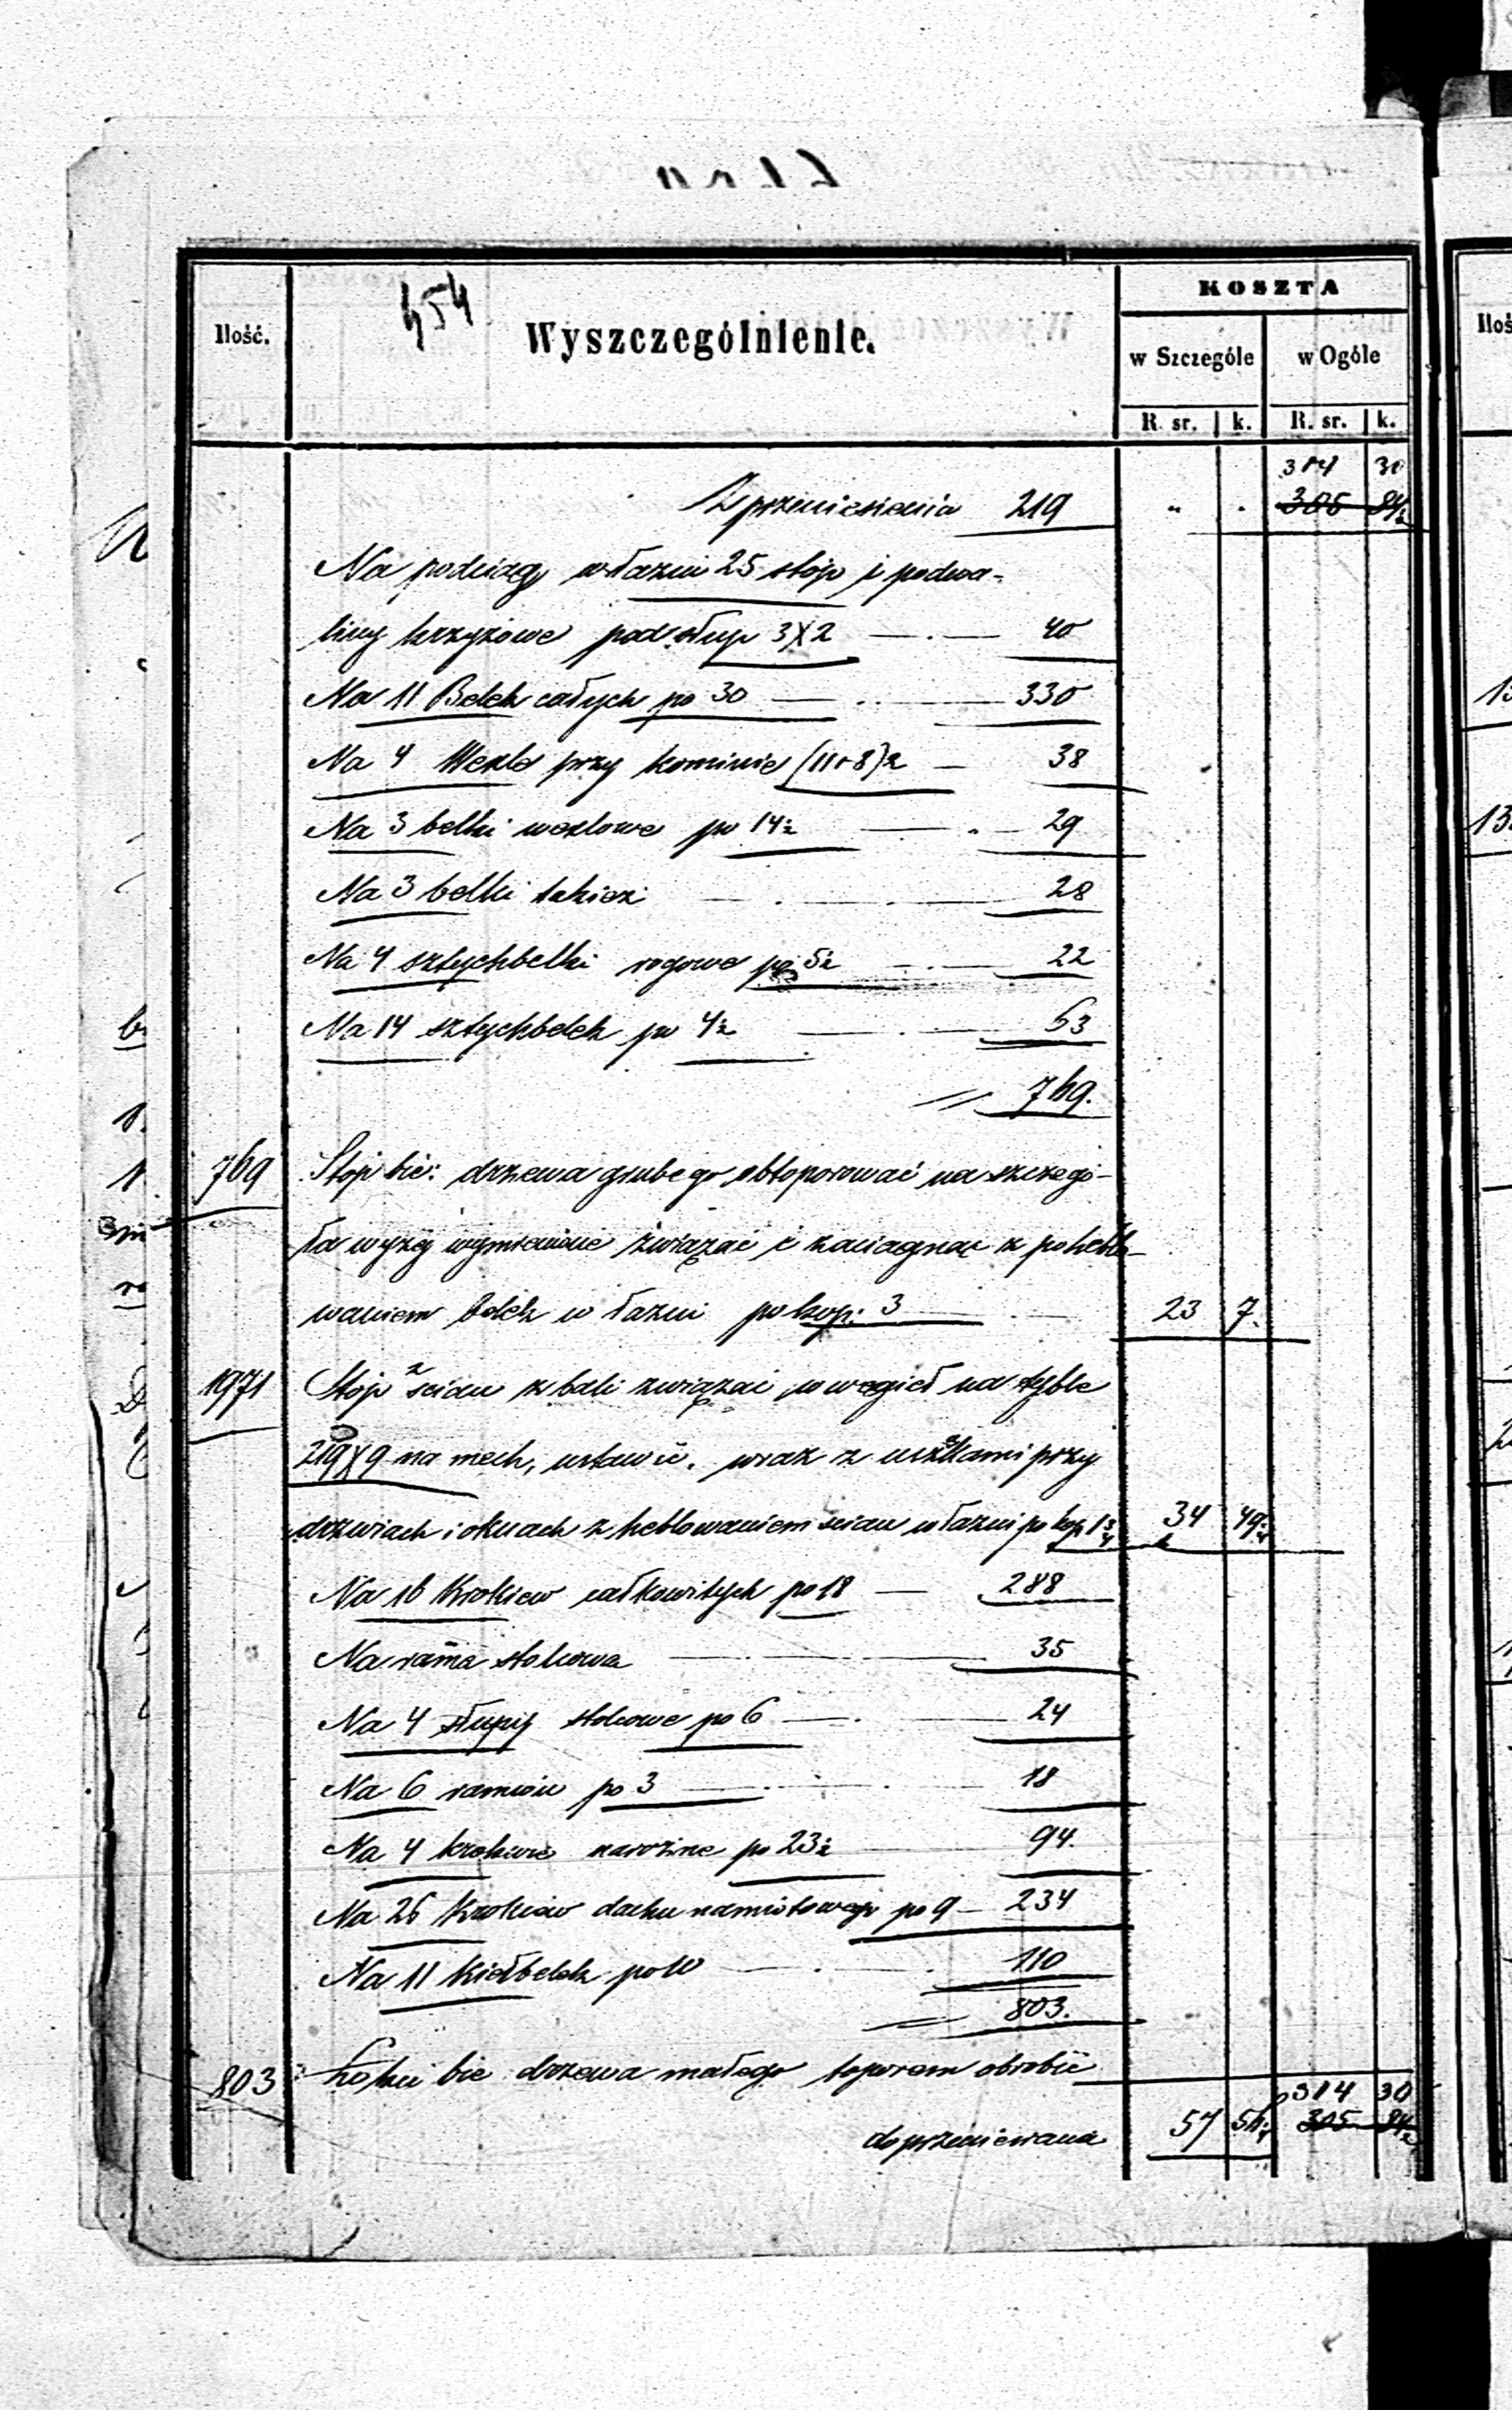 454
Ilość. Wyszczególnienie. KOSZTA
w Szczególe w Ogóle
R. sr. k. R. sr. k.
314 30
Z przeniesienia 219 " " 305 84½
Na podciąg w łaźni 25 stóp i podwa-
liny krzyżowe pod słup 3X2 — 40
Na 11 Belek całych po 30 — 330
Na 4 Wexle przy kominie (11+8)2 — 38
Na 3 belki wexlowe po 14½ — 29
Na 3 belki takież — 28
Na 4 sztychbelki rogowe po 5½ — 22
Na 14 sztychbelek po 4½ — 63
= 769.
769 Stóp bie: drzewa grubego obtoporować na szczegó-
ła wyżej wymienione związać i zaciągnąć z poheblo-
waniem belek w łaźni po kop: 3 — 23 7.
1971 Stóp 2 ścian z bali związać w węgieł na tyble
219X9 na mech, ustawić. wraz z uszakami przy
drzwiach i oknach z heblowaniem ścian w łaźni po kop 1¾ 34 49¼
Na 16 Krokiew całkowitych po 18 — 288
Na rama stolcowa — 35
Na 4 słupy stolcowe po 6 — 24
Na 6 ramion po 3 — 18
Na 4 krokwie narożne po 23½ 94.
Na 26 Krokiew dachu namiotowego po 9 — 234
Na 11 kielbelek po 10 — 110
= 803.
803 Łokci bie drzewa małego toporem obrobić
314 30
do przeniesienia 57 56¼ 305 84½